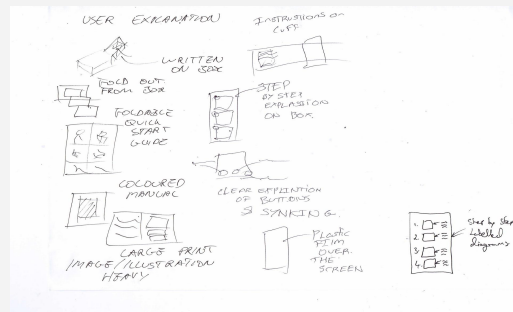 USER EXPLANATION
WRITTEN
ON BOX
FOLD OUT
FROM BOX
FOLDABLE
QUICK
START
GUIDE
COLOURED
MANUAL
LARGE PRINT
IMAGE/ILLUSTRATION
HEAVY
INSTRUCTIONS ON
CUFF
STEP
BY STEP
EXPLANATION
ON BOX.
CLEAR
OF BUTTONS
& SYNKING.
Plastic
FILM
OVER
THE
SCREEN
1.
2.
3.
4.
Step by Step
Labelled
diagrams